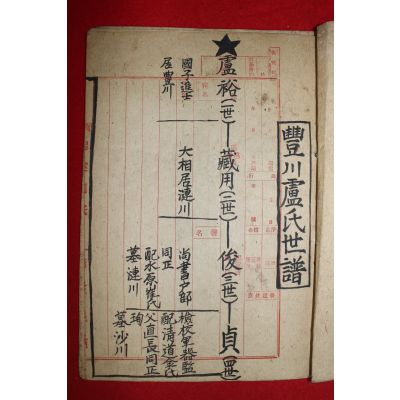 豐川盧氏世譜
盧裕(一世)—藏用(二世)—俊(三世)—貞(四世)
國子進士
居豊川
大相居漣川
尚書戶部
同正
配水原崔氏
墓漣川
檢校軍器監
配清道金氏
父直長同正
珣
墓沙川